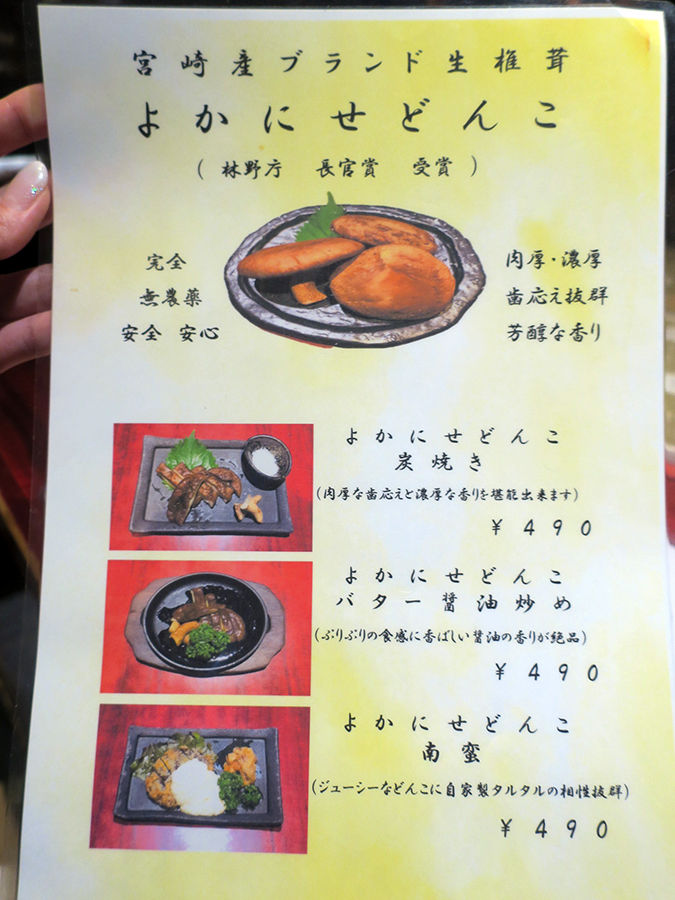 宮崎産ブランド生椎茸
よかにせどんこ
(林野庁 長官賞 受賞)
完全
無農薬
安全 安心
肉厚・濃厚
歯応え抜群
芳醇な香り
よかにせどんこ
炭焼き
(肉厚な歯応えと濃厚な香りを堪能出来ます)
¥490
よかにせどんこ
バター醤油炒め
(ぷりぷりの食感に香ばしい醤油の香りが絶品)
¥490
よかにせどんこ
南蛮
(ジューシーなどんこに自家製タルタルの相性抜群)
¥490